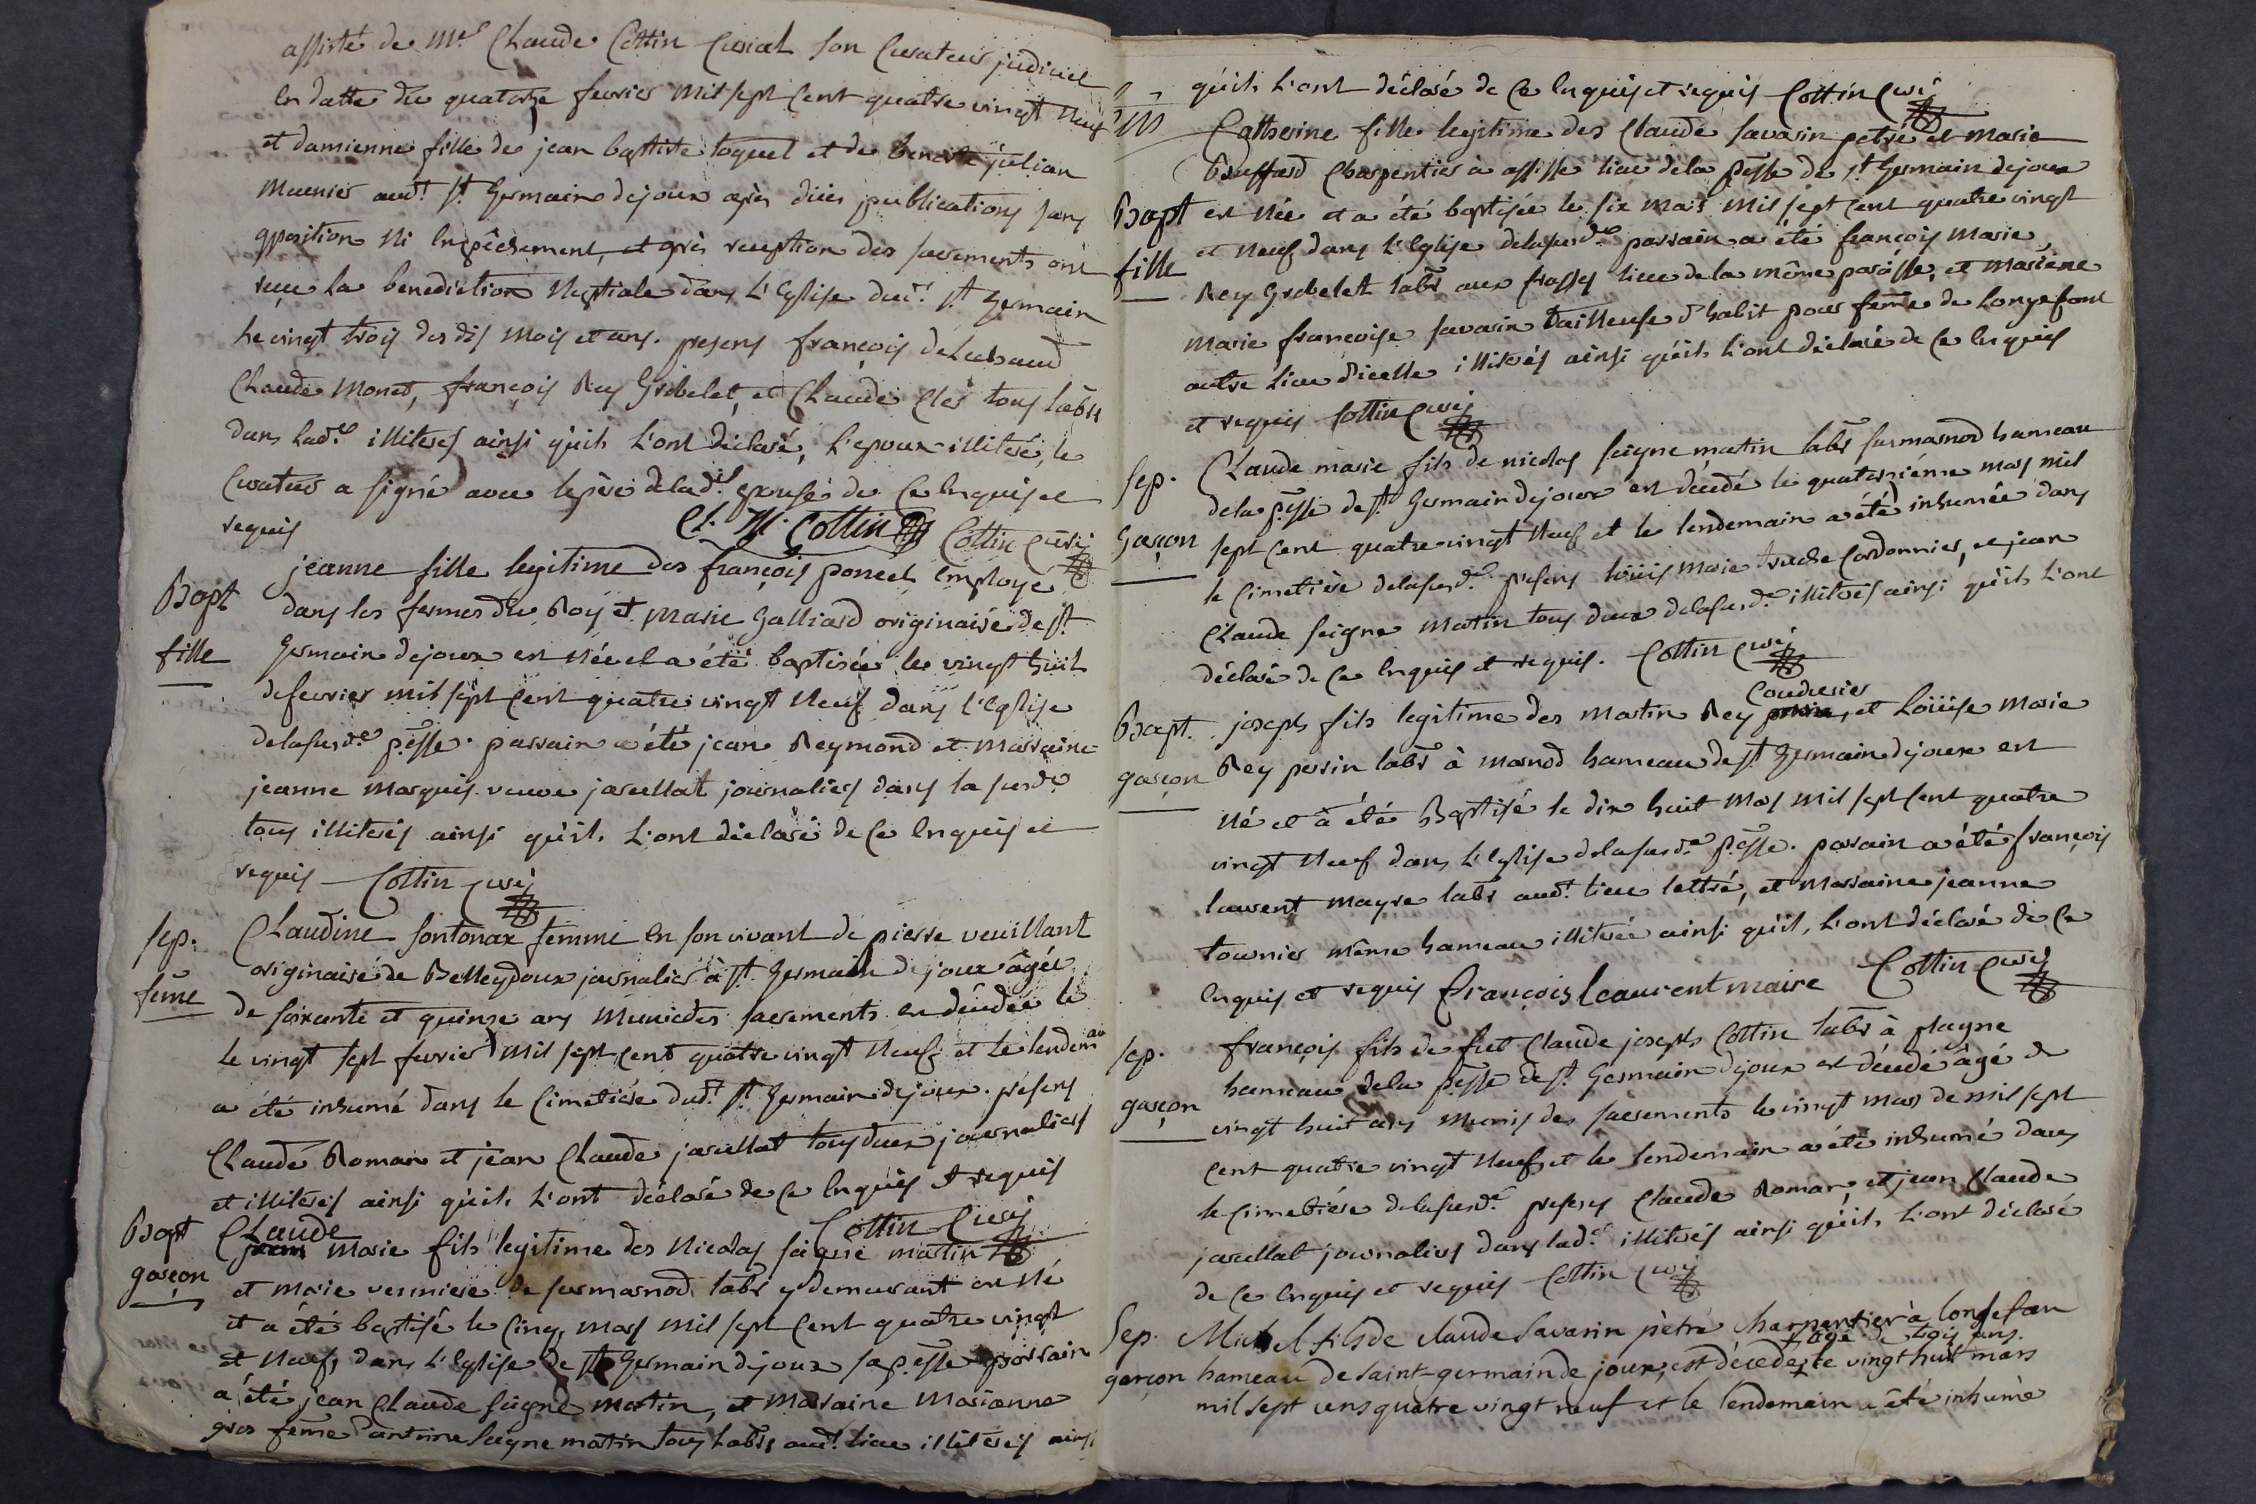 assisté de Me Claude Cottin Curial son Curateur judiciel
en datte du quatorze fevrier mil sept cent quatre vingt neuf
et damienne fille de jean baptiste toquel et de benoite julian
Meunier audt St Germain dejoux après dües publications sans
opposition ni Empêchement, et après reception des sacrements ont
reçu la benediction Nuptiale dans L'Eglise dudt St Germain
Le vingt trois des dis mois et ans. presens françois
Claude Monet, françois Rey Grobelet, et Claude tous Labrs
dans Lade illiterés ainsi quils L'ont déclaré, L'epoux illiteré, le
Curateur a signé avec le père de lade épouse de Ce Enquis et
requis Cl. M. Cottin Cottin Curé
Bapt
fille
jeanne fille legitime des françois poncet Employé
dans les fermes du Roy et Marie Galliard originaire de St
Germain dejoux est née et a été baptisée le vingt huit
de fevrier mil sept Cent quatre vingt Neuf dans L'Eglise
de la susde pesse. parrain a été jean Reymond et Marraine
jeanne Marquis veuve jacullat journaliers dans la susde
tous illiterés ainsi quils L'ont déclaré de Ce Enquis et
requis Cottin Curé
sep.
feme
Claudine sontonax femme En son vivant de pierre veuillant
originaire de Belleydoux journalier à St Germain dejoux âgée
de soixante et quinze ans Munie des sacrements en décédée le
Le vingt sept fevrier mil sept cent quatre vingt Neuf et Le lendemain
a été inhumé dans le Cimetière dudt St Germain dejoux. presens
Claude Roman et jean Claude jacullat tous deux journaliers
et illiterés ainsi quils L'ont déclaré de Ce Enquis et requis
Cottin Curé
Bapt
garçon
Claude
jean Marie fils legitime des Nicolas seigne martin
et Marie vernier de surmarnod labr y demeurant est Né
et a été baptisé le Cinq Mars mil sept Cent quatre vingt
et Neuf dans L'Eglise de St Germain dejoux sa pesse parrain
a été jean Claude seigne martin, et Marraine Marianne
gros feme d'antoine seigne martin tous Labrs audt Lieu illiterés ainsi
quils L'ont déclaré de Ce Enquis et requis Cottin Curé
Bapt
fille
Catherine fille legitime des Claude savarin petré et Marie
Bruffard Charpentier à lieu de la pesse de St Germain dejoux
est Née et a été baptisée le six Mars mil sept cent quatre vingt
et Neuf dans L'Eglise de la susde parrain a été françois Marie
Rey Grobelet labr aux frasses lieu de la même paroisse, et Maraine
Marie françoise savarin Tailleuse d'habit pour feme de Longefont
autre Lieu d'icelle illiterés ainsi quils L'ont déclaré de Ce Enquis
et requis Cottin Curé
sep.
Garçon
Claude marie fils de nicolas seigne martin labr surmarnod hameau
de la pesse de St Germain dejoux est décédé le quatorzième mars mil
sept Cent quatre vingt Neuf et le lendemain a été inhumée dans
le Cimetière de la susde presens Loüis Marie truche Cordonnier, et jean
Claude seigne Martin tous deux de la susde illiterés ainsi quils L'ont
déclaré de Ce Enquis et requis. Cottin Curé
Bapt.
garçon
Coudurier
joseph fils legitime des Martin Rey perrin, et Loüise Marie
Rey perrin labr à marnod hameau de St Germain dejoux est
Né et à été Baptisé le dix huit Mars mil sept Cent quatre
vingt Neuf dans L'Eglise de la susde pesse. parrain a été françois
laurent mayre labr audt lieu lettré, et Marraine jeanne
tournier même hameau illiterée ainsi quils L'ont déclaré de Ce
Enquis et requis François leaurent maire Cottin Curé
sep.
garçon
françois fils de fut Claude joseph Cottin labr à plagne
hameau de la pesse de St Germain dejoux est décédé âgé de
vingt huit ans Munis des sacrements le vingt mars de mil sept
Cent quatre vingt Neuf et le lendemain a été inhumé dans
le Cimetière de la susde presens Claude Roman et jean Claude
jacullat journaliers dans lade illiterés ainsi quils L'ont déclaré
de Ce Enquis et requis Cottin Curé
Sep.
garçon
Michel fils de claude Savarin pètré charpentier à longefan
âgé de trois ans
hameau de Saint-germain de joux, est décedé, le vingt huit mars
mil sept cens quatre vingt neuf et le lendemain a été inhumé